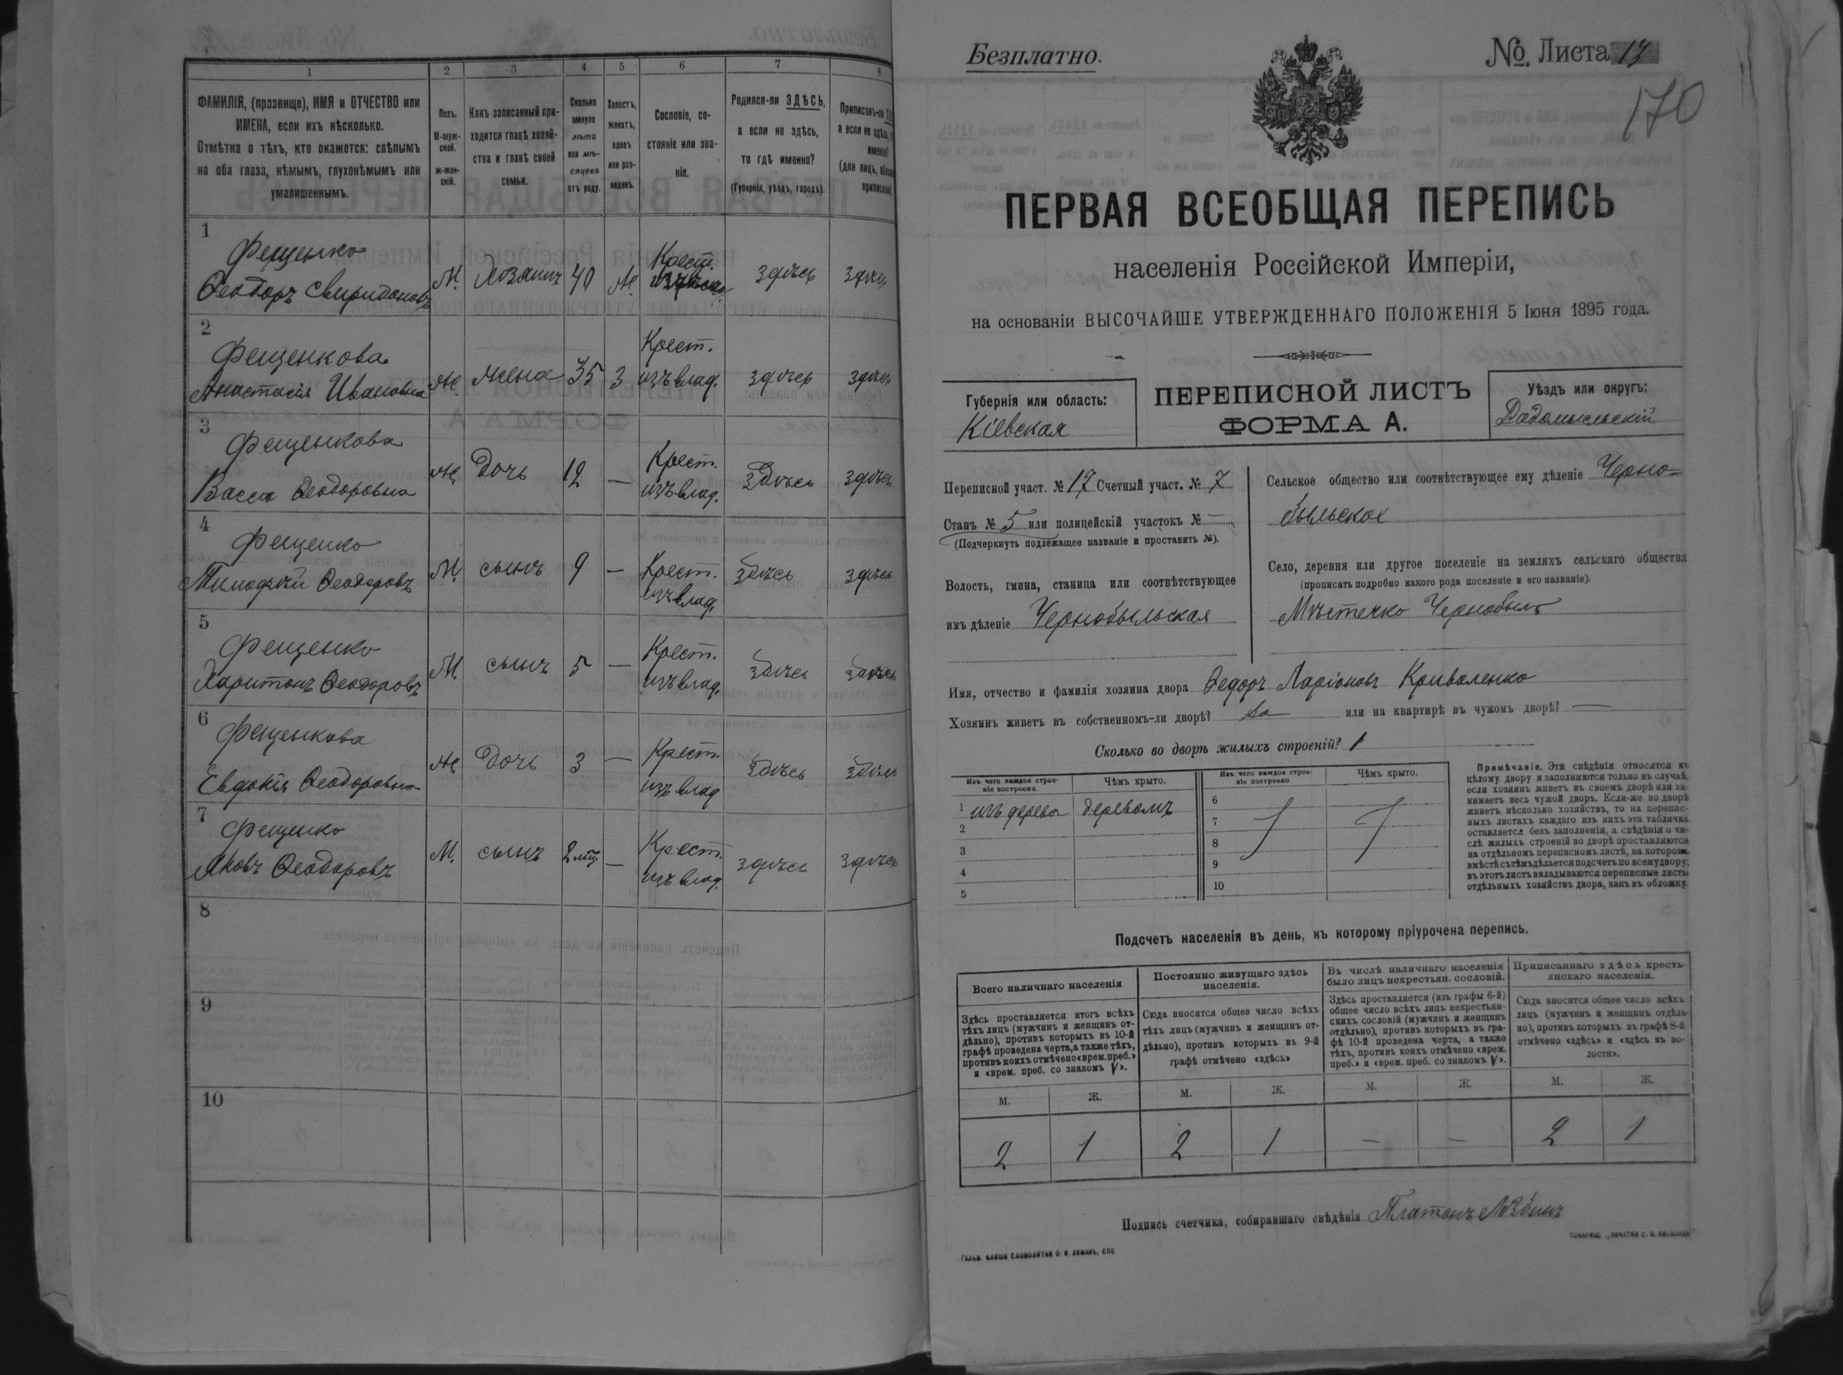 1 2 3 4 5 6 7 8
ФАМИЛІЯ, (прозвище), ИМЯ и ОТЧЕСТВО или
ИМЕНА, если ихъ нѣсколько.
Отмѣтка о тѣхъ, кто окажется: слѣпымъ
на оба глаза, нѣмымъ, глухонѣмымъ или
умалишеннымъ.
Полъ.
М-муж-
ской.
Ж-жен-
скій.
Какъ записанный при-
ходится главѣ хозяй-
ства и главѣ своей
семьи.
Сколько
минуло
лѣтъ
или мѣ-
сяцевъ
отъ роду.
Холостъ,
женатъ,
вдовъ
или раз-
веденъ.
Сословіе, со-
стояніе или зва-
ніе.
Родился-ли ЗДѢСЬ,
а если не здѣсь,
то гдѣ именно?
(Губернія, уѣздъ, городъ).
Приписанъ-ли
а если не здѣсь,
именно?
(для лицъ,
1
Фещенко
Ѳеодоръ Свиридоновъ М. Хозяинъ 40 Ж. Крест. здѣсь здѣсь
2
Фещенкова
Анастасія Ивановна Ж. жена 35 З Крест. изъ влад. здѣсь здѣсь
3
Фещенкова
Васса Ѳеодоровна Ж. Дочь 12 — Крест. изъ влад. здѣсь здѣсь
4
Фещенко
Тимофѣй Ѳеодоровъ М. сынъ 9 — Крест. изъ влад. здѣсь здѣсь
5
Фещенко
Харитонъ Ѳеодоровъ М. сынъ 5 — Крест. изъ влад. здѣсь здѣсь
6
Фещенкова
Евдокія Ѳеодоровна Ж. Дочь 3 — Крест. изъ влад. здѣсь здѣсь
7
Фещенко
Яковъ Ѳеодоровъ М. сынъ 2 мѣс. — Крест. изъ влад. здѣсь здѣсь
8
9
10
Безплатно.
№ Листа 17
170
ПЕРВАЯ ВСЕОБЩАЯ ПЕРЕПИСЬ
населенія Россійской Имперіи,
на основаніи ВЫСОЧАЙШЕ УТВЕРЖДЕННАГО ПОЛОЖЕНІЯ 5 Іюня 1895 года.
Губернія или область:
Кіевская
ПЕРЕПИСНОЙ ЛИСТЪ
ФОРМА А.
Уѣздъ или округъ:
Радомысльскій
Переписной участ. № 17 Счетный участ. № 7
Станъ № 5 или полицейскій участокъ № —
(Подчеркнуть подлежащее названіе и проставить №).
Волость, гмина, станица или соотвѣтствующее
имъ дѣленіе Чернобыльская
Сельское общество или соотвѣтствующее ему дѣленіе Черно-
быльское
Село, деревня или другое поселеніе на земляхъ сельскаго общества
(прописать подробно какого рода поселеніе и его названіе)
Мѣстечко Чернобыль
Имя, отчество и фамилія хозяина двора Ѳедоръ Ларіоновъ Криволенко
Хозяинъ живетъ въ собственномъ-ли дворѣ? да или на квартирѣ въ чужомъ дворѣ? —
Сколько во дворѣ жилыхъ строеній? 1
Изъ чего каждое строе-
ніе построено
Чѣмъ крыто.
Изъ чего каждое строе-
ніе построено
Чѣмъ крыто.
1 изъ дерева деревомъ 6
2 7
3 8
4 9
5 10
Примѣчаніе. Эти свѣдѣнія относятся къ
цѣлому двору и заполняются только въ случаѣ,
если хозяинъ живетъ въ своемъ дворѣ или за-
нимаетъ весь чужой дворъ. Если-же во дворѣ
живетъ нѣсколько хозяйствъ, то на перепис-
ныхъ листахъ каждаго изъ нихъ эта табличка
оставляется безъ заполненія, а свѣдѣнія о чи-
слѣ жилыхъ строеній во дворѣ проставляются
на отдѣльномъ переписномъ листѣ, на которомъ
вмѣстѣ съ тѣмъ дѣлается подсчетъ по всему двору;
въ этотъ листъ вкладываются переписные листы
отдѣльныхъ хозяйствъ двора, какъ въ обложку.
Подсчетъ населенія въ день, къ которому пріурочена перепись.
Всего наличнаго населенія
Здѣсь проставляется итогъ всѣхъ
тѣхъ лицъ (мужчинъ и женщинъ от-
дѣльно), противъ которыхъ въ 10-й
графѣ проведена черта, а также тѣхъ,
противъ коихъ отмѣчено «врем. преб.»
и «врем. преб. со знакомъ V».
Постоянно живущаго здѣсь
населенія.
Сюда вносится общее число всѣхъ
тѣхъ лицъ (мужчинъ и женщинъ от-
дѣльно), противъ которыхъ въ 9-й
графѣ отмѣчено «здѣсь»
Въ числѣ наличнаго населенія
было лицъ некрестьян. сословій.
Здѣсь проставляется (изъ графы 6-й)
общее число всѣхъ лицъ некрестьян-
скихъ сословій (мужчинъ и женщинъ
отдѣльно), противъ которыхъ въ гра-
фѣ 10-й проведена черта, а также
тѣхъ, противъ коихъ отмѣчено «врем.
преб.» и «врем. преб. со знакомъ V».
Приписаннаго здѣсь кресть-
янскаго населенія.
Сюда вносится общее число всѣхъ
лицъ (мужчинъ и женщинъ отдѣль-
но), противъ которыхъ въ графѣ 8-й
отмѣчено «здѣсь» и «здѣсь въ во-
лости».
М. Ж. М. Ж. М. Ж. М. Ж.
2 1 2 1 — — 2 1
Подпись счетчика, собиравшаго свѣдѣнія Платонъ